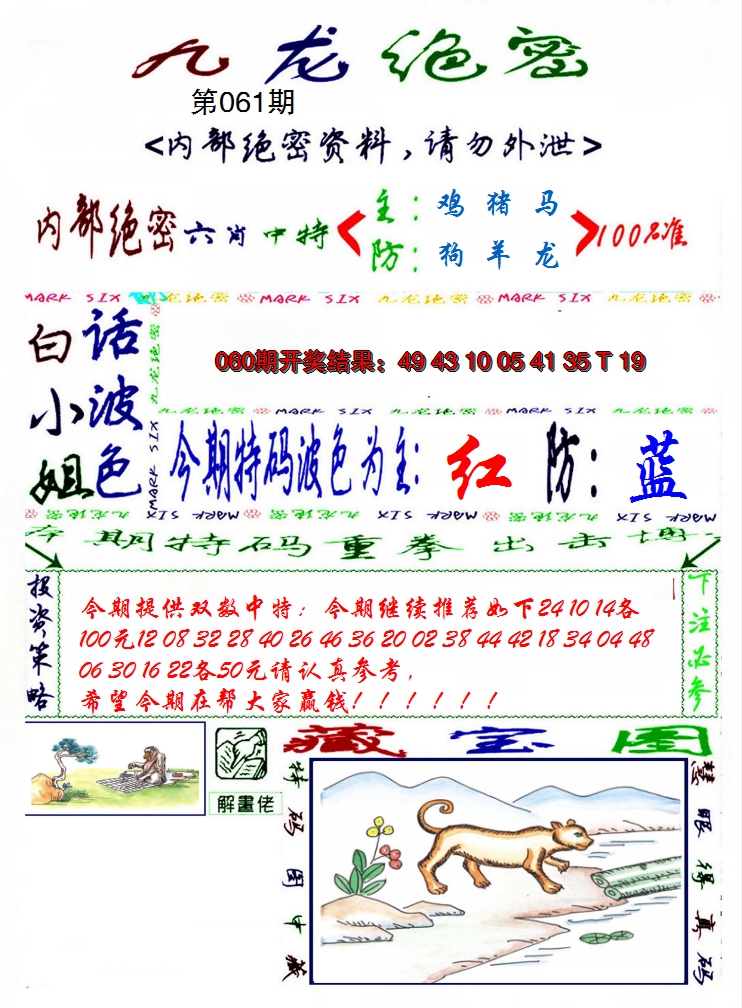 九龙绝密
第061期
<内部绝密资料，请勿外泄>
内部绝密六肖中特
主：鸡 猪 马
防：狗 羊 龙
100%准
MARK SIX 九龙绝密 MARK SIX 九龙绝密 MARK SIX 九龙绝密
白小姐
话波色
九龙绝密 MARK SIX
060期开奖结果：49 43 10 05 41 35 T 19
九龙绝密 MARK SIX 九龙绝密 MARK SIX 九龙绝密
今期特码波色为主：红 防：蓝
MARK SIX 九龙绝密 MARK SIX 九龙绝密 MARK SIX
本期特码重拳出击博
投资策略
今期提供双数中特；今期继续推荐如下24 10 14各
100元12 08 32 28 40 26 46 36 20 02 38 44 42 18 34 04 48
06 30 16 22各50元请认真参考，
希望今期在帮大家赢钱！！！！！！
下注必参
藏宝图
解畫佬
特码图中藏
慧眼得真码